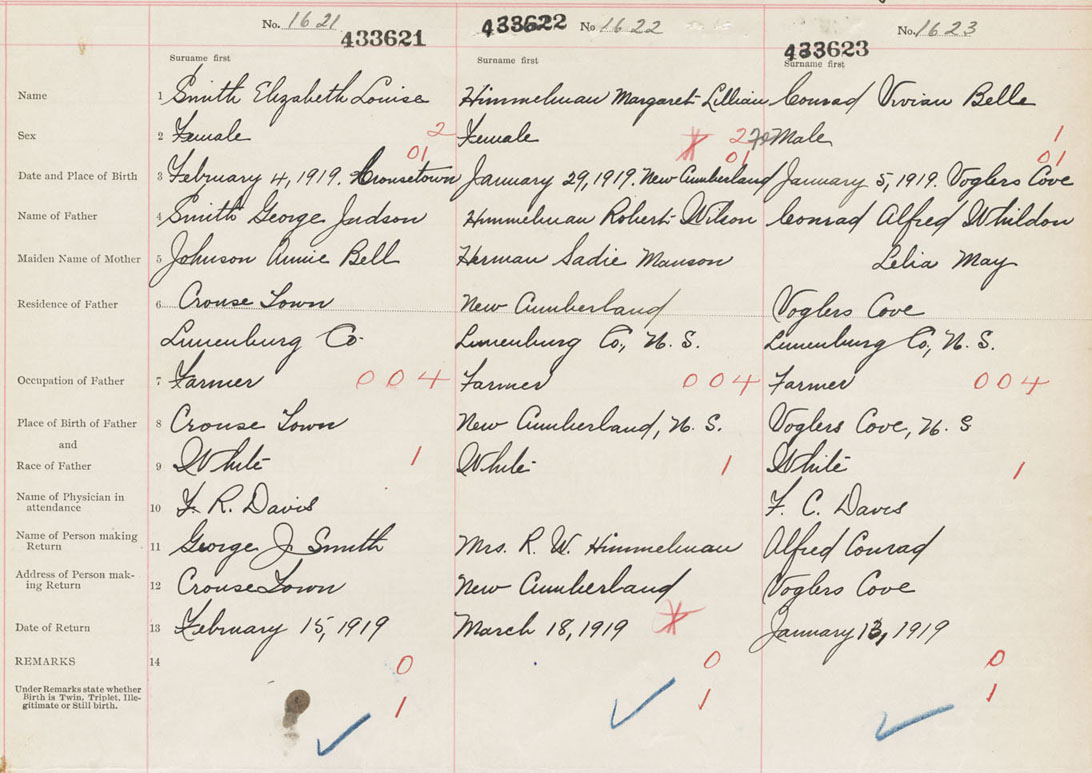 No. 1621 433621 433622 No 1622 433623 No. 1623
Surname first Surname first Surname first
Name 1 Smith Elizabeth Louise Himmelman Margaret Lillian Conrad Vivian Belle
Sex 2 Female 2 Female 2 Fe Male 1
01 01 01
Date and Place of Birth 3 February 4, 1919. Crousetown January 29, 1919. New Cumberland January 5, 1919. Voglers Cove
Name of Father 4 Smith George Judson Himmelman Robert Wilson Conrad Alfred Whildon
Maiden Name of Mother 5 Johnson Annie Bell Herman Sadie Manson Lelia May
Residence of Father 6 Crouse Town New Cumberland Voglers Cove
Lunenburg Co. Lunenburg Co., N. S. Lunenburg Co., N. S.
Occupation of Father 7 Farmer 004 Farmer 004 Farmer 004
Place of Birth of Father 8 Crouse Town New Cumberland, N. S. Voglers Cove, N. S
and
Race of Father 9 White 1 White 1 White 1
Name of Physician in
attendance 10 F. R. Davis F. C. Davis
Name of Person making
Return 11 George J Smith Mrs. R. W. Himmelman Alfred Conrad
Address of Person mak-
ing Return 12 Crouse Town New Cumberland Voglers Cove
Date of Return 13 February 15, 1919 March 18, 1919 January 13, 1919
REMARKS 14 0 0 0
Under Remarks state whether
Birth is Twin, Triplet, Ille-
gitimate or Still birth. 1 1 1